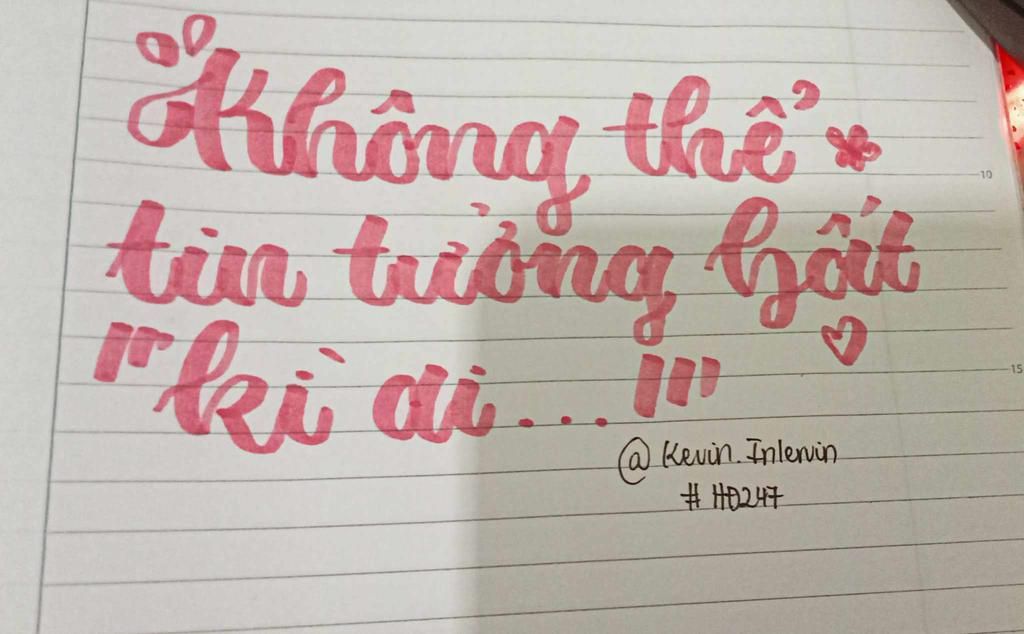 Không thể
10
tin tưởng bất
"kì ai..."
15
@Kevin.Inlervin
#HĐ247